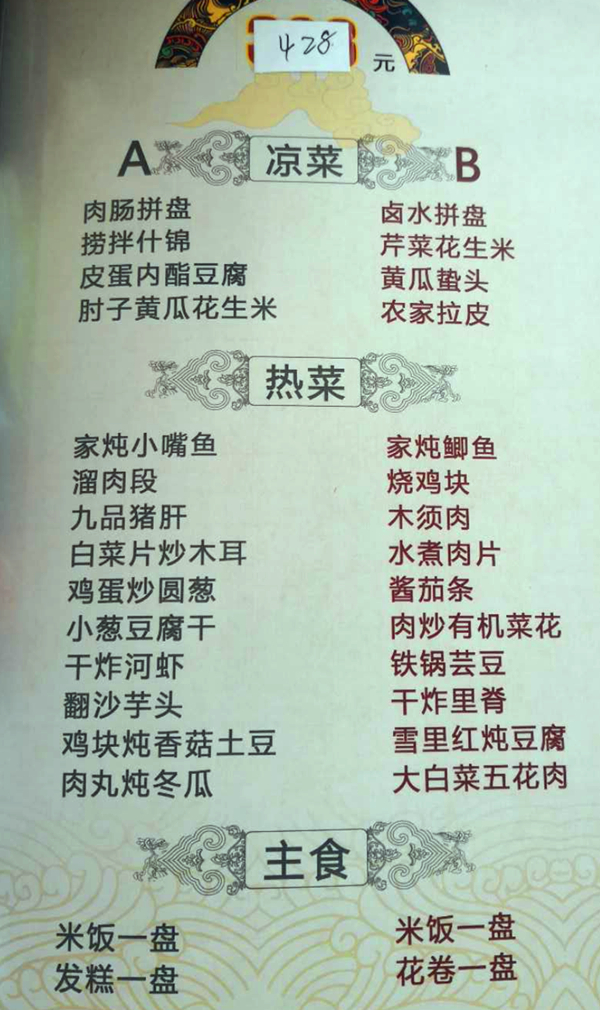 428
元
A 凉菜 B
肉肠拼盘 卤水拼盘
捞拌什锦 芹菜花生米
皮蛋内酯豆腐 黄瓜蛰头
肘子黄瓜花生米 农家拉皮
热菜
家炖小嘴鱼 家炖鲫鱼
溜肉段 烧鸡块
九品猪肝 木须肉
白菜片炒木耳 水煮肉片
鸡蛋炒圆葱 酱茄条
小葱豆腐干 肉炒有机菜花
干炸河虾 铁锅芸豆
翻沙芋头 干炸里脊
鸡块炖香菇土豆 雪里红炖豆腐
肉丸炖冬瓜 大白菜五花肉
主食
米饭一盘 米饭一盘
发糕一盘 花卷一盘